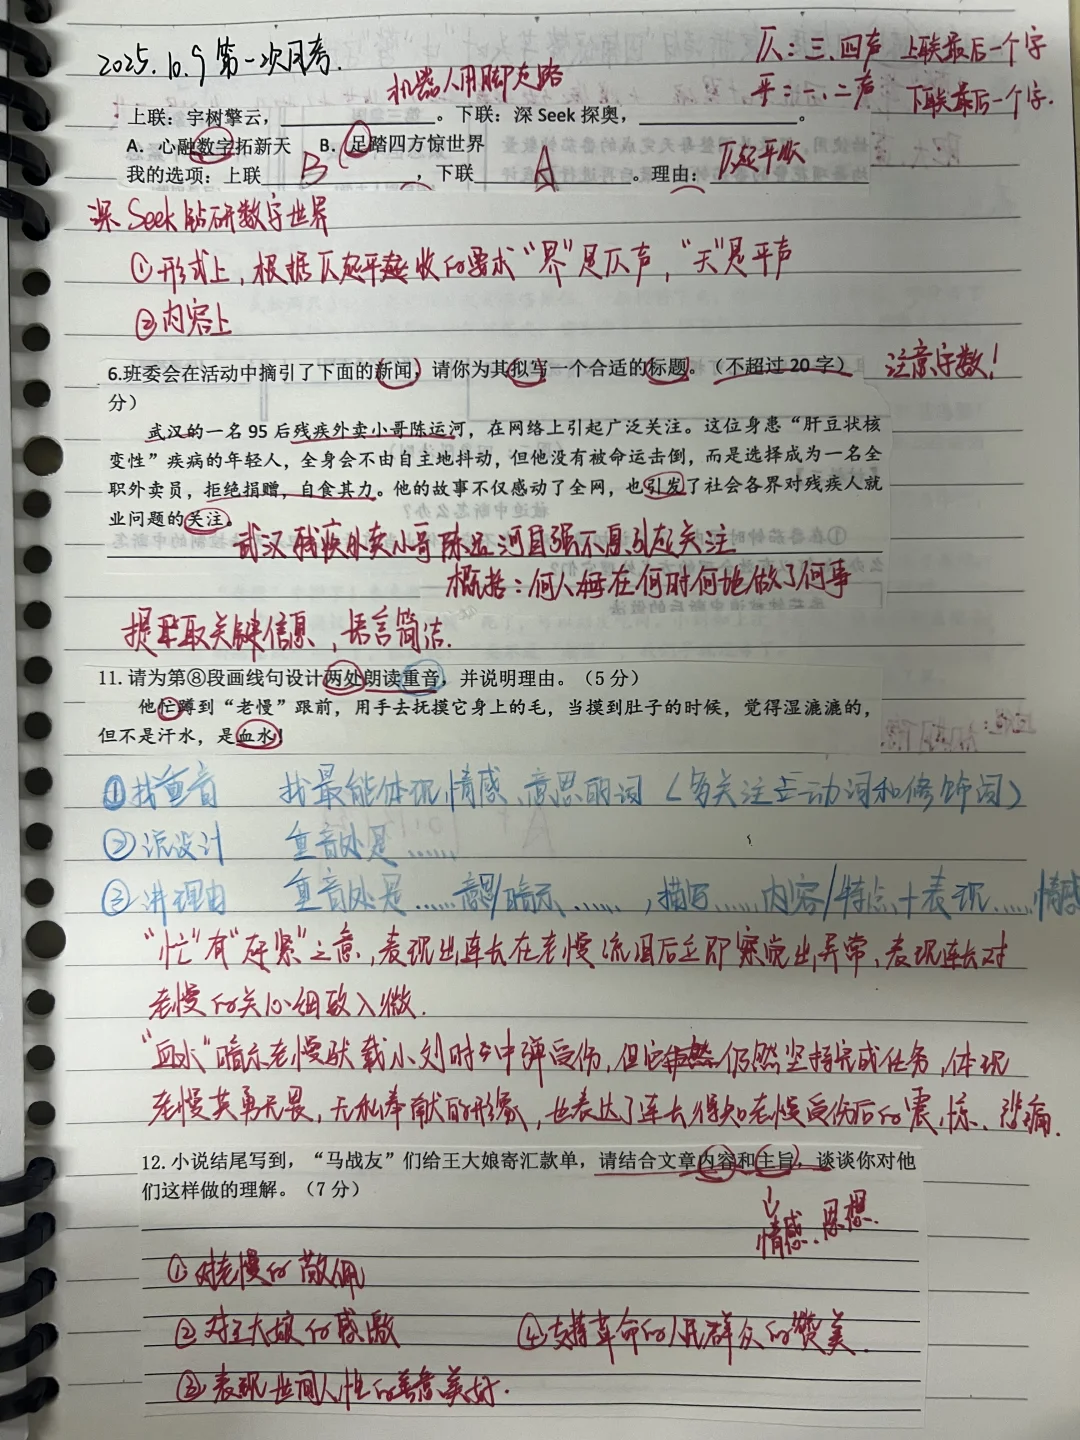 2025.10.9 第一次月考.
仄：三、四声 上联最后一个字
平：一、二声 下联最后一个字.
机器人用脚走路
上联：宇树擎云，____________。下联：深 Seek 探奥，____________。
A．心融数字拓新天 B．足踏四方惊世界
我的选项：上联 B ，下联 A 。理由：仄起平收
深 Seek 钻研数字世界
①形式上，根据仄起平收的要求“界”是仄声，“天”是平声
②内容上
6.班委会在活动中摘引了下面的新闻，请你为其拟写一个合适的标题。（不超过 20 字）
注意字数！
分）
武汉的一名 95 后残疾外卖小哥陈运河，在网络上引起广泛关注。这位身患“肝豆状核
变性”疾病的年轻人，全身会不由自主地抖动，但他没有被命运击倒，而是选择成为一名全
职外卖员，拒绝捐赠，自食其力。他的故事不仅感动了全网，也引发了社会各界对残疾人就
业问题的关注。
武汉残疾外卖小哥陈运河自强不息引起关注
概括：何人在何时何地做了何事
提取关键信息，语言简洁.
11. 请为第⑧段画线句设计两处朗读重音，并说明理由。（5 分）
他忙蹲到“老慢”跟前，用手去抚摸它身上的毛，当摸到肚子的时候，觉得湿漉漉的，
但不是汗水，是血水！
①找重音 找最能体现情感、意思的词（多关注动词和修饰词）
②说设计 重音处是……
③讲理由 重音处是……意思/暗示……，描写……内容/特点＋表现……情感
“忙”有“赶紧”之意，表现出连长在老慢流泪后立即察觉出异常，表现连长对
老慢的关心细致入微.
“血水”暗示老慢驮载小刘时中弹受伤，但它仍然坚持完成任务，体现
老慢英勇无畏，无私奉献的形象，也表达了连长得知老慢受伤后的震惊、悲痛.
12. 小说结尾写到，“马战友”们给王大娘寄汇款单，请结合文章内容和主旨，谈谈你对他
们这样做的理解。（7 分）
情感、思想.
①对老慢的敬佩
②对王大娘的感激 ④支持革命的人民群众的赞美.
③表现世间人性的善意美好.